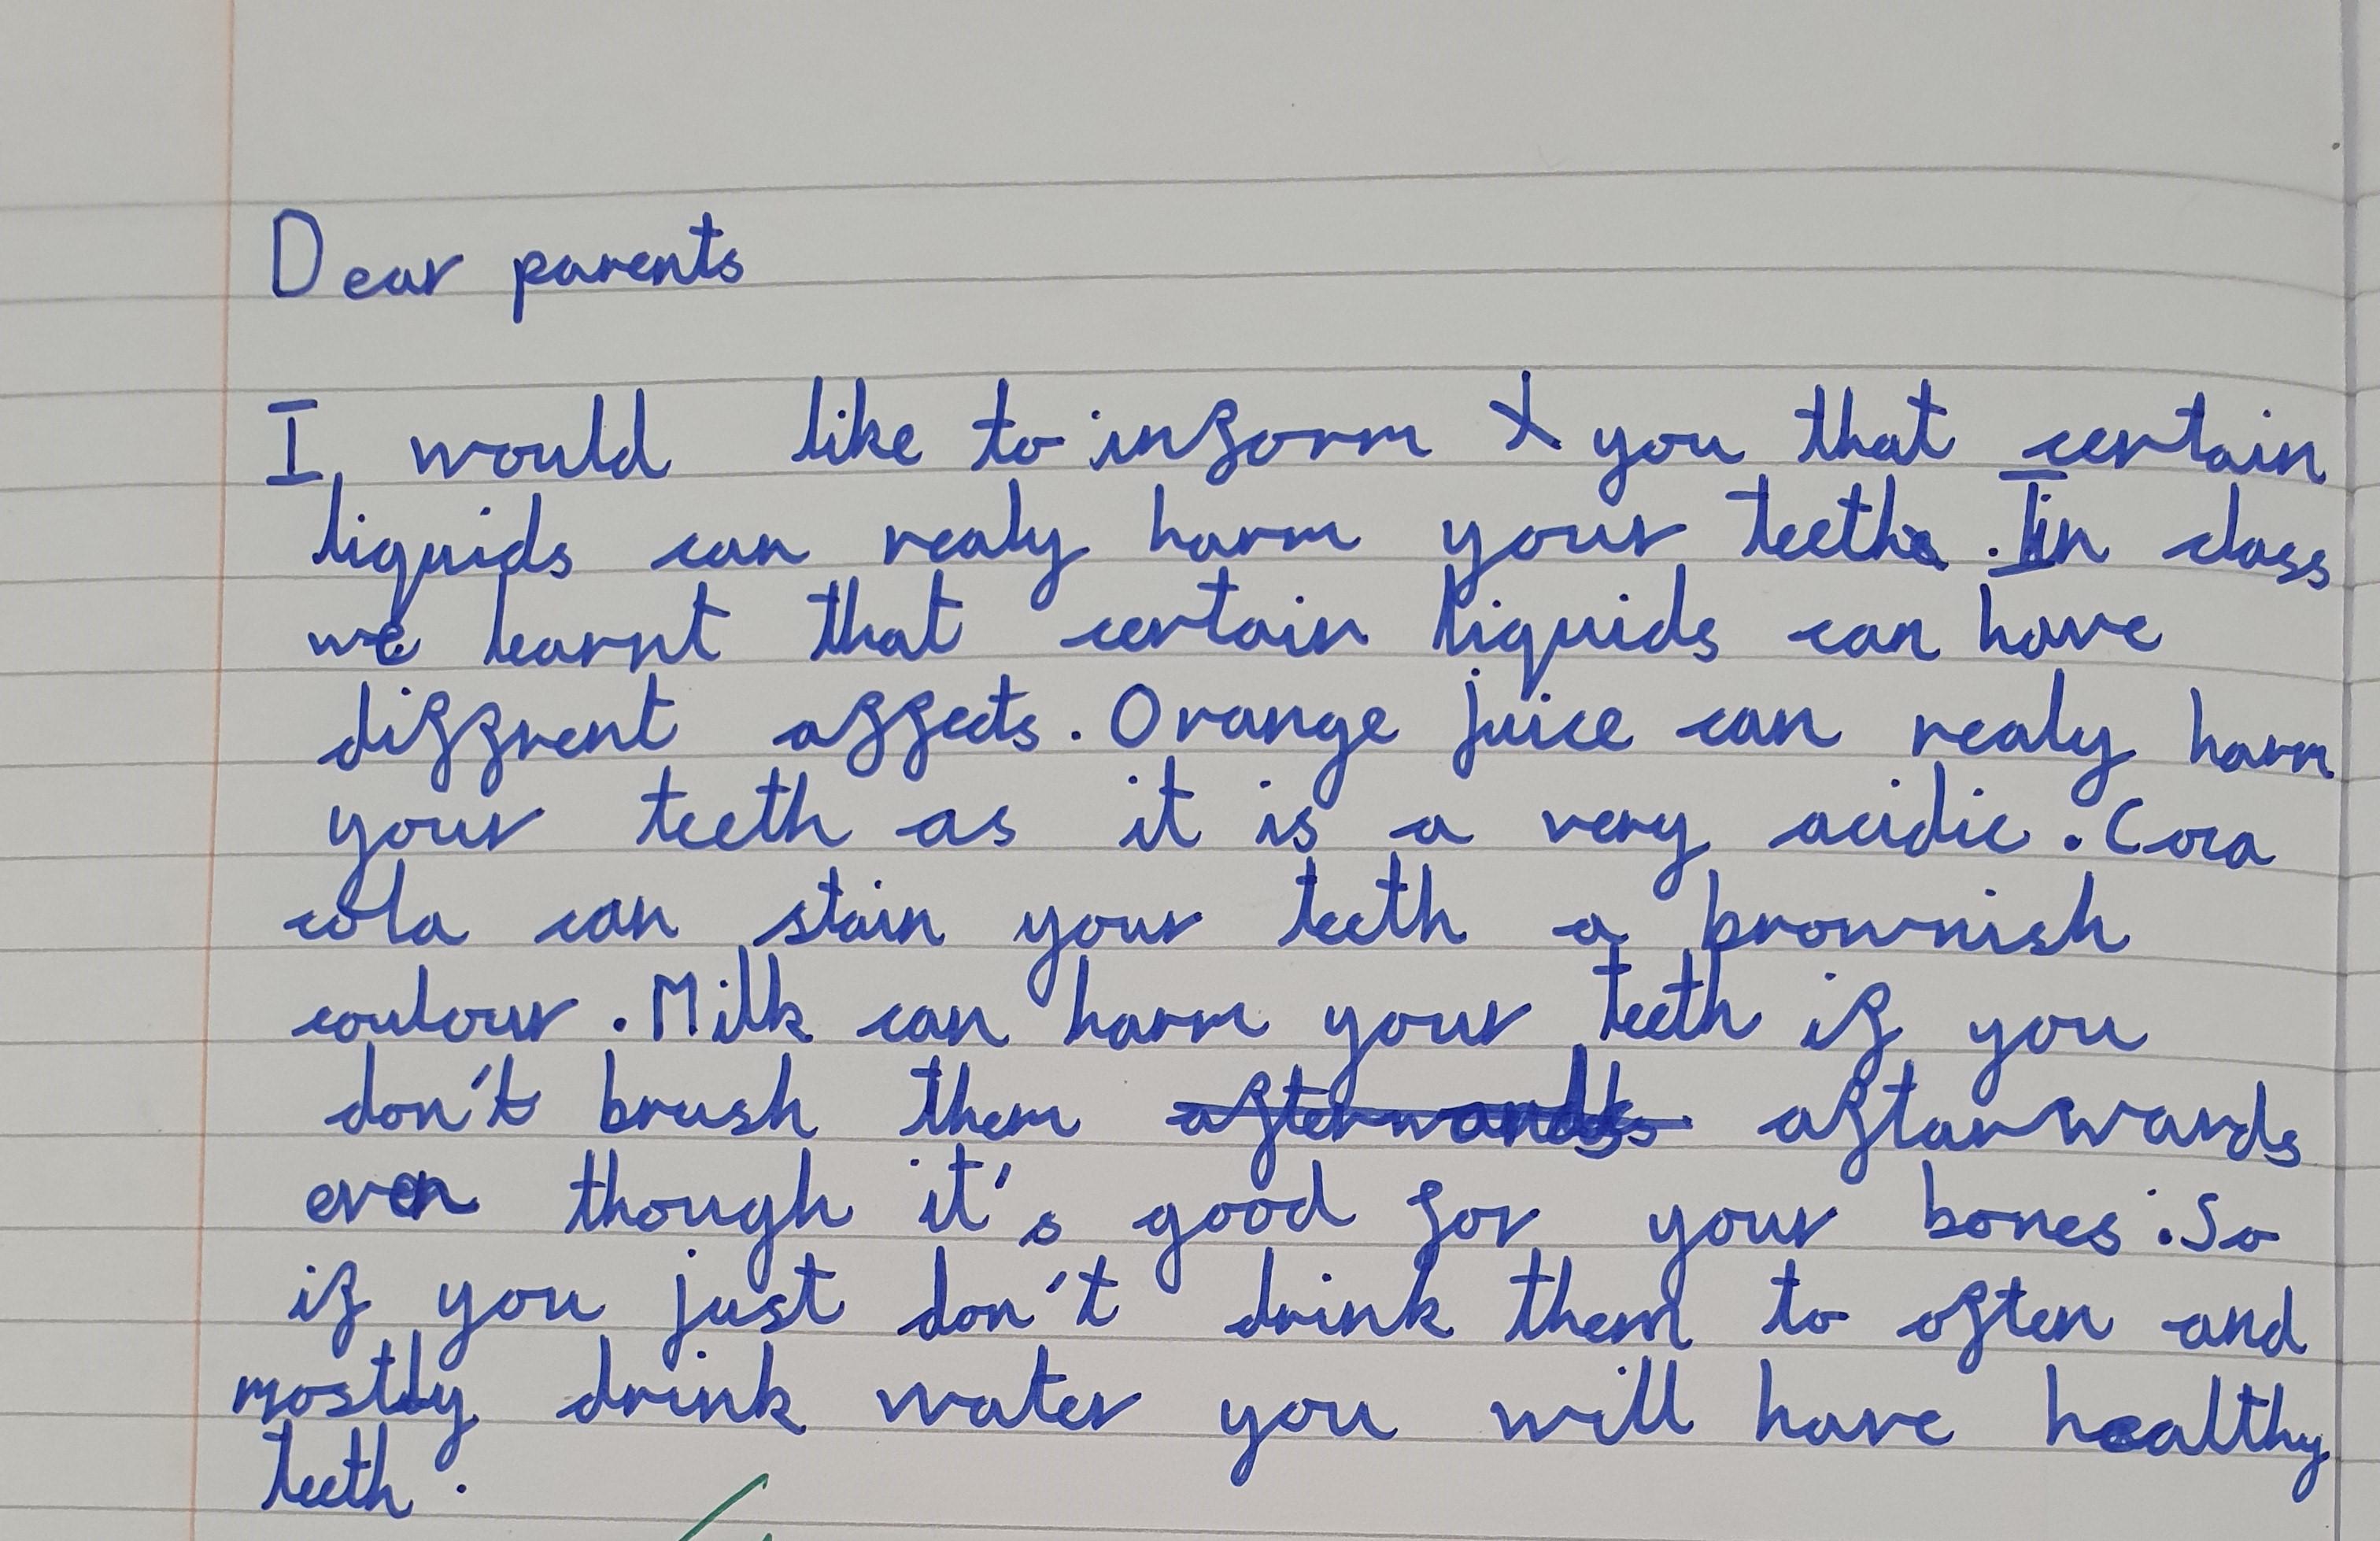 Dear parents
I would like to inform you that certain
liquids can realy harm your teeth. In class
we learnt that certain liquids can have
diffrent affects. Orange juice can realy harm
your teeth as it is a very acidic. Coca
cola can stain your teeth a brownish
coulour. Milk can harm your teeth if you
don't brush them afterwards aftarwards
even though it's good for your bones. So
if you just don't drink them to often and
mostly drink water you will have healthy
teeth.